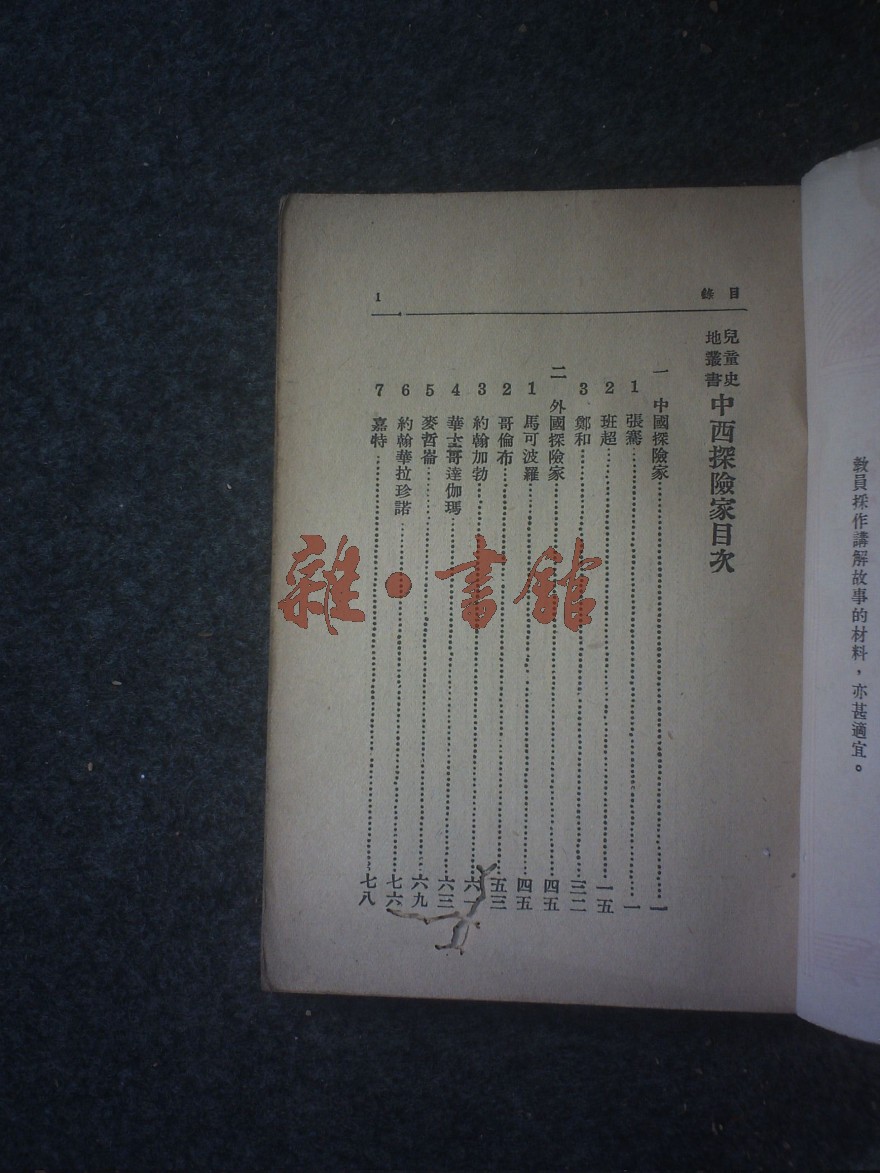 教員採作講解故事的材料，亦甚適宜。
目錄
1
兒童史地叢書 中西探險家目次
一 中國探險家……一
1 張騫……一
2 班超……一五
3 鄭和……三二
二 外國探險家……四五
1 馬可波羅……四五
2 哥倫布……五三
3 約翰加勃……六一
4 華士哥達伽瑪……六三
5 麥哲崙……六九
6 約翰華拉珍諾……七六
7 嘉特……七八
雜·書館